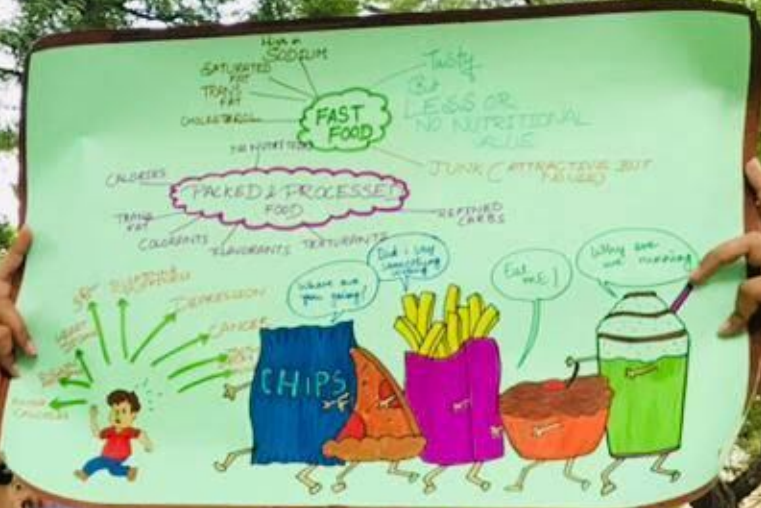 High in
SODIUM
SATURATED
FAT
TRANS
FAT
CHOLESTEROL
FAST
FOOD
Tasty
But
LESS OR
NO NUTRITIONAL
VALUE
JUNK (ATTRACTIVE BUT
CALORIES
PACKED & PROCESSED
FOOD
TRANS
FAT
COLORANTS
FLAVORANTS
TEXTURANTS
REFINED
CARBS
DEPRESSION
CANCER
Where are
you going!
Did i say
something
wrong?
Eat
me!
Why are
we running
CHIPS